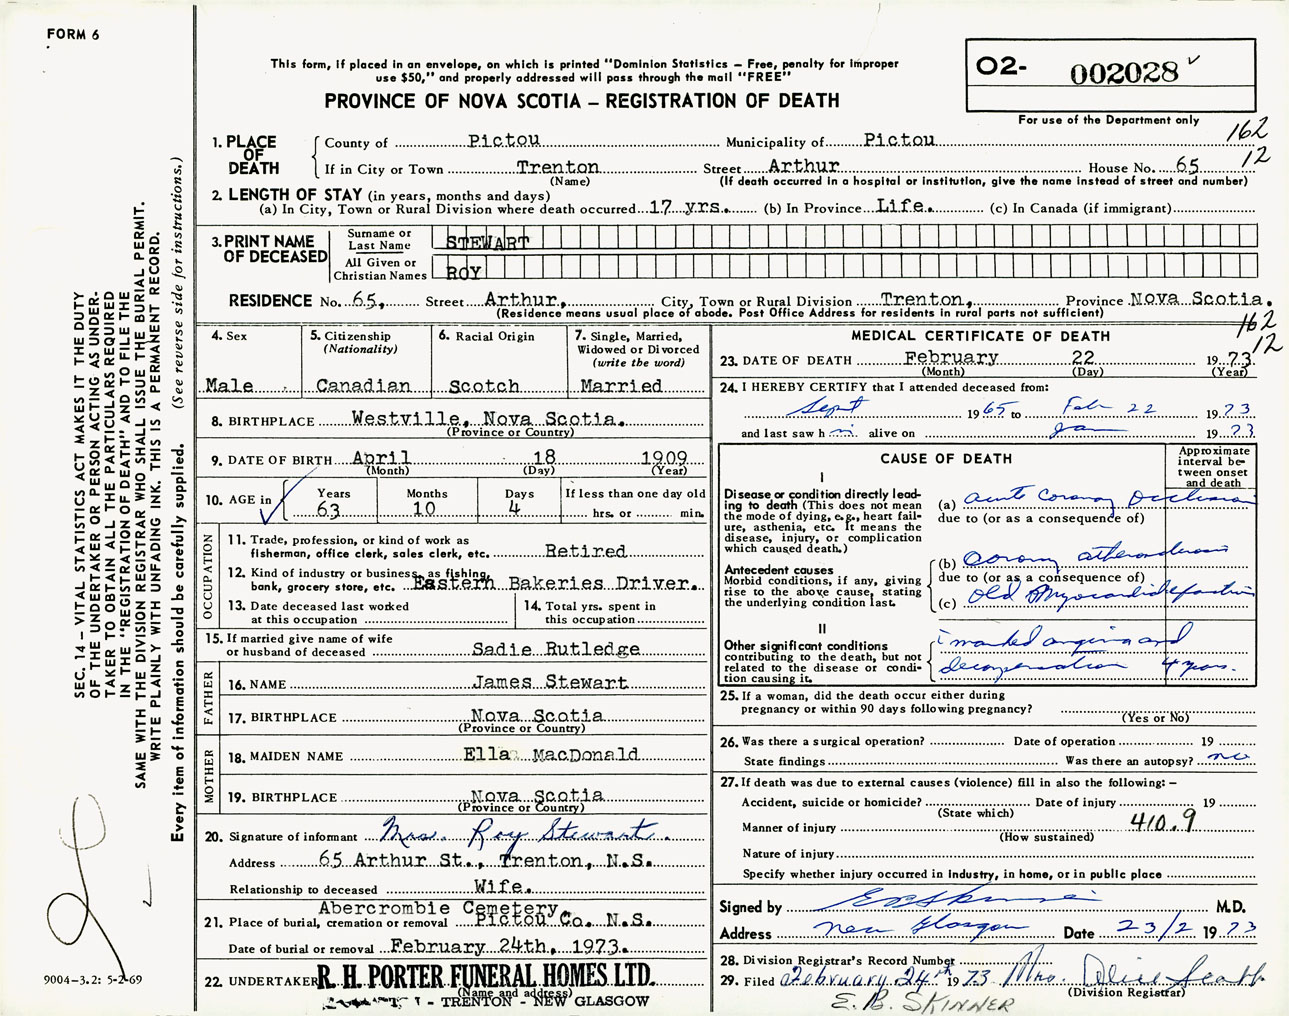 FORM 6
This form, if placed in an envelope, on which is printed "Dominion Statistics – Free, penalty for improper
use $50," and properly addressed will pass through the mail "FREE"
PROVINCE OF NOVA SCOTIA – REGISTRATION OF DEATH
O2- 002028
For use of the Department only
162
12
1. PLACE OF DEATH
County of Pictou Municipality of Pictou
If in City or Town Trenton Street Arthur House No. 65
(Name) (If death occurred in a hospital or institution, give the name instead of street and number)
2. LENGTH OF STAY (in years, months and days)
(a) In City, Town or Rural Division where death occurred 17 yrs. (b) In Province Life. (c) In Canada (if immigrant)
3. PRINT NAME OF DECEASED
Surname or Last Name STEWART
All Given or Christian Names ROY
RESIDENCE No. 65, Street Arthur, City, Town or Rural Division Trenton, Province Nova Scotia.
(Residence means usual place of abode. Post Office Address for residents in rural parts not sufficient)
162
12
4. Sex
Male
5. Citizenship
(Nationality)
Canadian
6. Racial Origin
Scotch
7. Single, Married,
Widowed or Divorced
(write the word)
Married
8. BIRTHPLACE Westville, Nova Scotia.
(Province or Country)
9. DATE OF BIRTH April 18 1909
(Month) (Day) (Year)
10. AGE in
Years Months Days If less than one day old
63 10 4 hrs. or min.
OCCUPATION
11. Trade, profession, or kind of work as
fisherman, office clerk, sales clerk, etc. Retired
12. Kind of industry or business, as fishing,
bank, grocery store, etc. Eastern Bakeries Driver.
13. Date deceased last worked
at this occupation
14. Total yrs. spent in
this occupation
15. If married give name of wife
or husband of deceased Sadie Rutledge
FATHER
16. NAME James Stewart
17. BIRTHPLACE Nova Scotia
(Province or Country)
MOTHER
18. MAIDEN NAME Ella MacDonald
19. BIRTHPLACE Nova Scotia
(Province or Country)
20. Signature of informant Mrs. Roy Stewart.
Address 65 Arthur St., Trenton, N.S.
Relationship to deceased Wife.
Abercrombie Cemetery
21. Place of burial, cremation or removal Pictou Co. N.S.
Date of burial or removal February 24th, 1973.
22. UNDERTAKER R. H. PORTER FUNERAL HOMES LTD.
(Name and address)
- TRENTON - NEW GLASGOW
MEDICAL CERTIFICATE OF DEATH
23. DATE OF DEATH February 22 1973
(Month) (Day) (Year)
24. I HEREBY CERTIFY that I attended deceased from:
Sept 1965 to Feb 22 1973
and last saw him alive on Jan 1973
CAUSE OF DEATH
Approximate
interval be-
tween onset
and death
I
Disease or condition directly lead-
ing to death (This does not mean
the mode of dying, e.g., heart fail-
ure, asthenia, etc. It means the
disease, injury, or complication
which caused death.)
(a) acute coronary occlusion
due to (or as a consequence of)
Antecedent causes
Morbid conditions, if any, giving
rise to the above cause, stating
the underlying condition last.
(b) coronary atherosclerosis
due to (or as a consequence of)
(c) old Myocardial infarction
II
Other significant conditions
contributing to the death, but not
related to the disease or condi-
tion causing it.
marked angina and
decompensation 4 years.
25. If a woman, did the death occur either during
pregnancy or within 90 days following pregnancy?
(Yes or No)
26. Was there a surgical operation? Date of operation 19
State findings Was there an autopsy? no
27. If death was due to external causes (violence) fill in also the following: –
Accident, suicide or homicide? Date of injury 19
(State which)
Manner of injury 410.9
(How sustained)
Nature of injury
Specify whether injury occurred in industry, in home, or in public place
Signed by EBSkinner M.D.
Address New Glasgow Date 23/2 1973
28. Division Registrar's Record Number
29. Filed February 24th 1973 Mrs. Alice Scott
(Division Registrar)
E. B. SKINNER
SEC. 14 – VITAL STATISTICS ACT MAKES IT THE DUTY
OF THE UNDERTAKER OR PERSON ACTING AS UNDER-
TAKER TO OBTAIN ALL THE PARTICULARS REQUIRED
IN THE "REGISTRATION OF DEATH" AND TO FILE THE
SAME WITH THE DIVISION REGISTRAR WHO SHALL ISSUE THE BURIAL PERMIT.
WRITE PLAINLY WITH UNFADING INK. THIS IS A PERMANENT RECORD.
Every item of information should be carefully supplied. (See reverse side for instructions.)
9004-3.2: 5-2-69